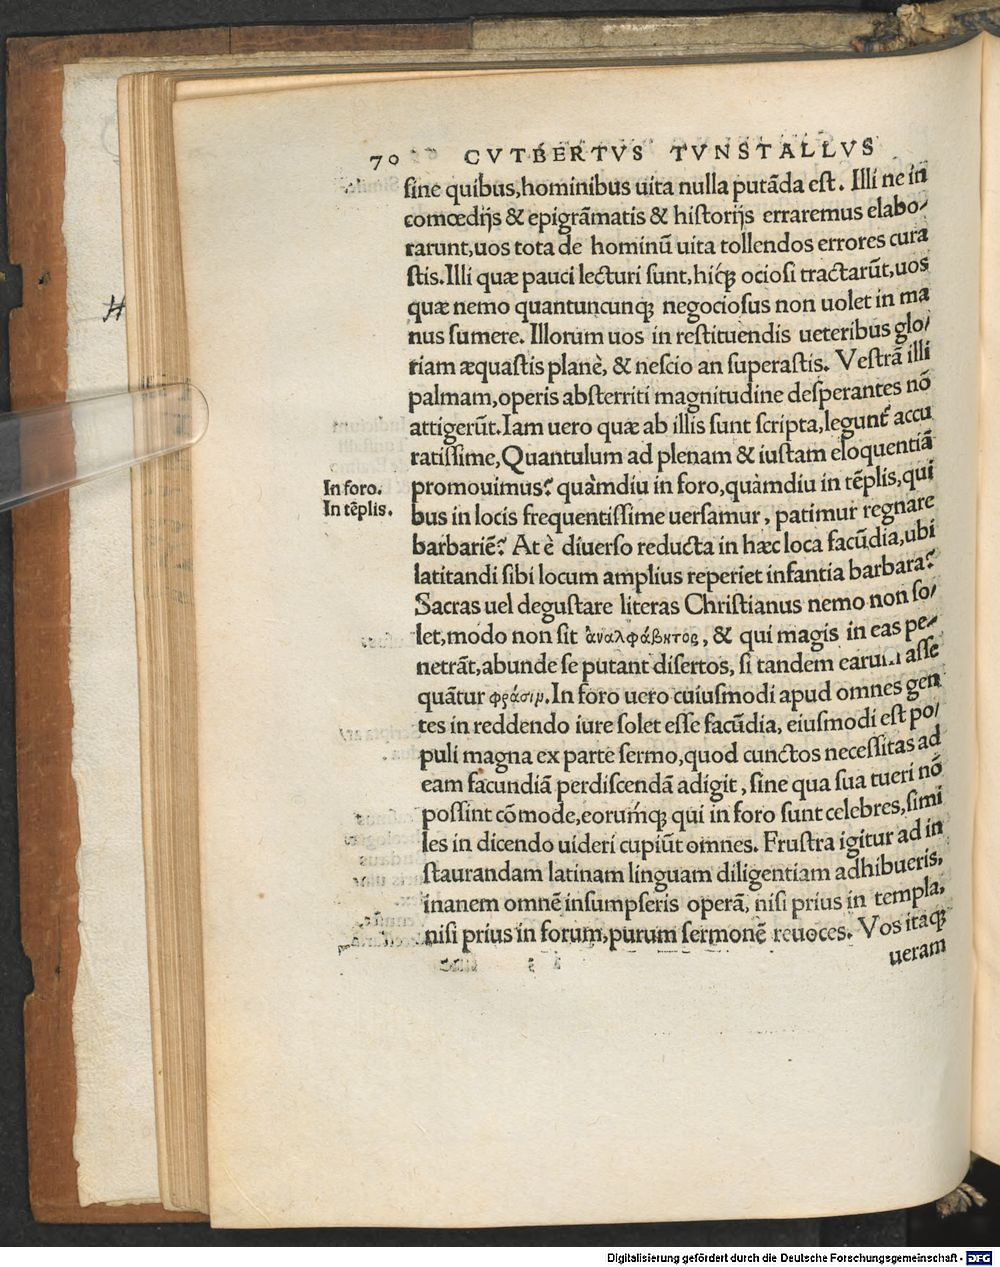 70 CVTBERTVS TVNSTALLVS
sine quibus,hominibus uita nulla putãda est. Illi ne in
comœdijs & epigrãmatis & historijs erraremus elabo-
rarunt,uos tota de hominũ uita tollendos errores cura
stis.Illi quæ pauci lecturi sunt,hicꝗ ociosi tractarũt,uos
quæ nemo quantuncunqꝫ negociosus non uolet in ma
nus sumere. Illorum uos in restituendis ueteribus glo/
riam æquastis planè, & nescio an superastis. Vestrã illi
palmam,operis absterriti magnitudine desperantes nõ
attigerũt.Iam uero quæ ab illis sunt scripta,legunt̃ accu
ratissime,Quantulum ad plenam & iustam eloquentiã
In foro. promouimus? quàmdiu in foro,quàmdiu in tẽplis,qui
In tẽplis. bus in locis frequentissime uersamur, patimur regnare
barbariẽ? At è diuerso reducta in hæc loca facũdia,ubi
latitandi sibi locum amplius reperiet infantia barbara?
Sacras uel degustare literas Christianus nemo non so/
let,modo non sit ἀναλφάβητος, & qui magis in eas pe-
netrãt,abunde se putant disertos, si tandem earum asse
quãtur φράσιμ.In foro uero cuiusmodi apud omnes gen
tes in reddendo iure solet esse facũdia, eiusmodi est po/
puli magna ex parte sermo,quod cunctos necessitas ad
eam facundiã perdiscendã adigit, sine qua sua tueri nõ
possint cõmode,eoruḿqꝫ qui in foro sunt celebres,simi
les in dicendo uideri cupiũt omnes. Frustra igitur ad in
staurandam latinam linguam diligentiam adhibueris,
inanem omnẽ insumpseris operã, nisi prius in templa,
nisi prius in forum,purum sermonẽ reuoces. Vos itaqꝫ
ueram
Digitalisierung gefördert durch die Deutsche Forschungsgemeinschaft - DFG